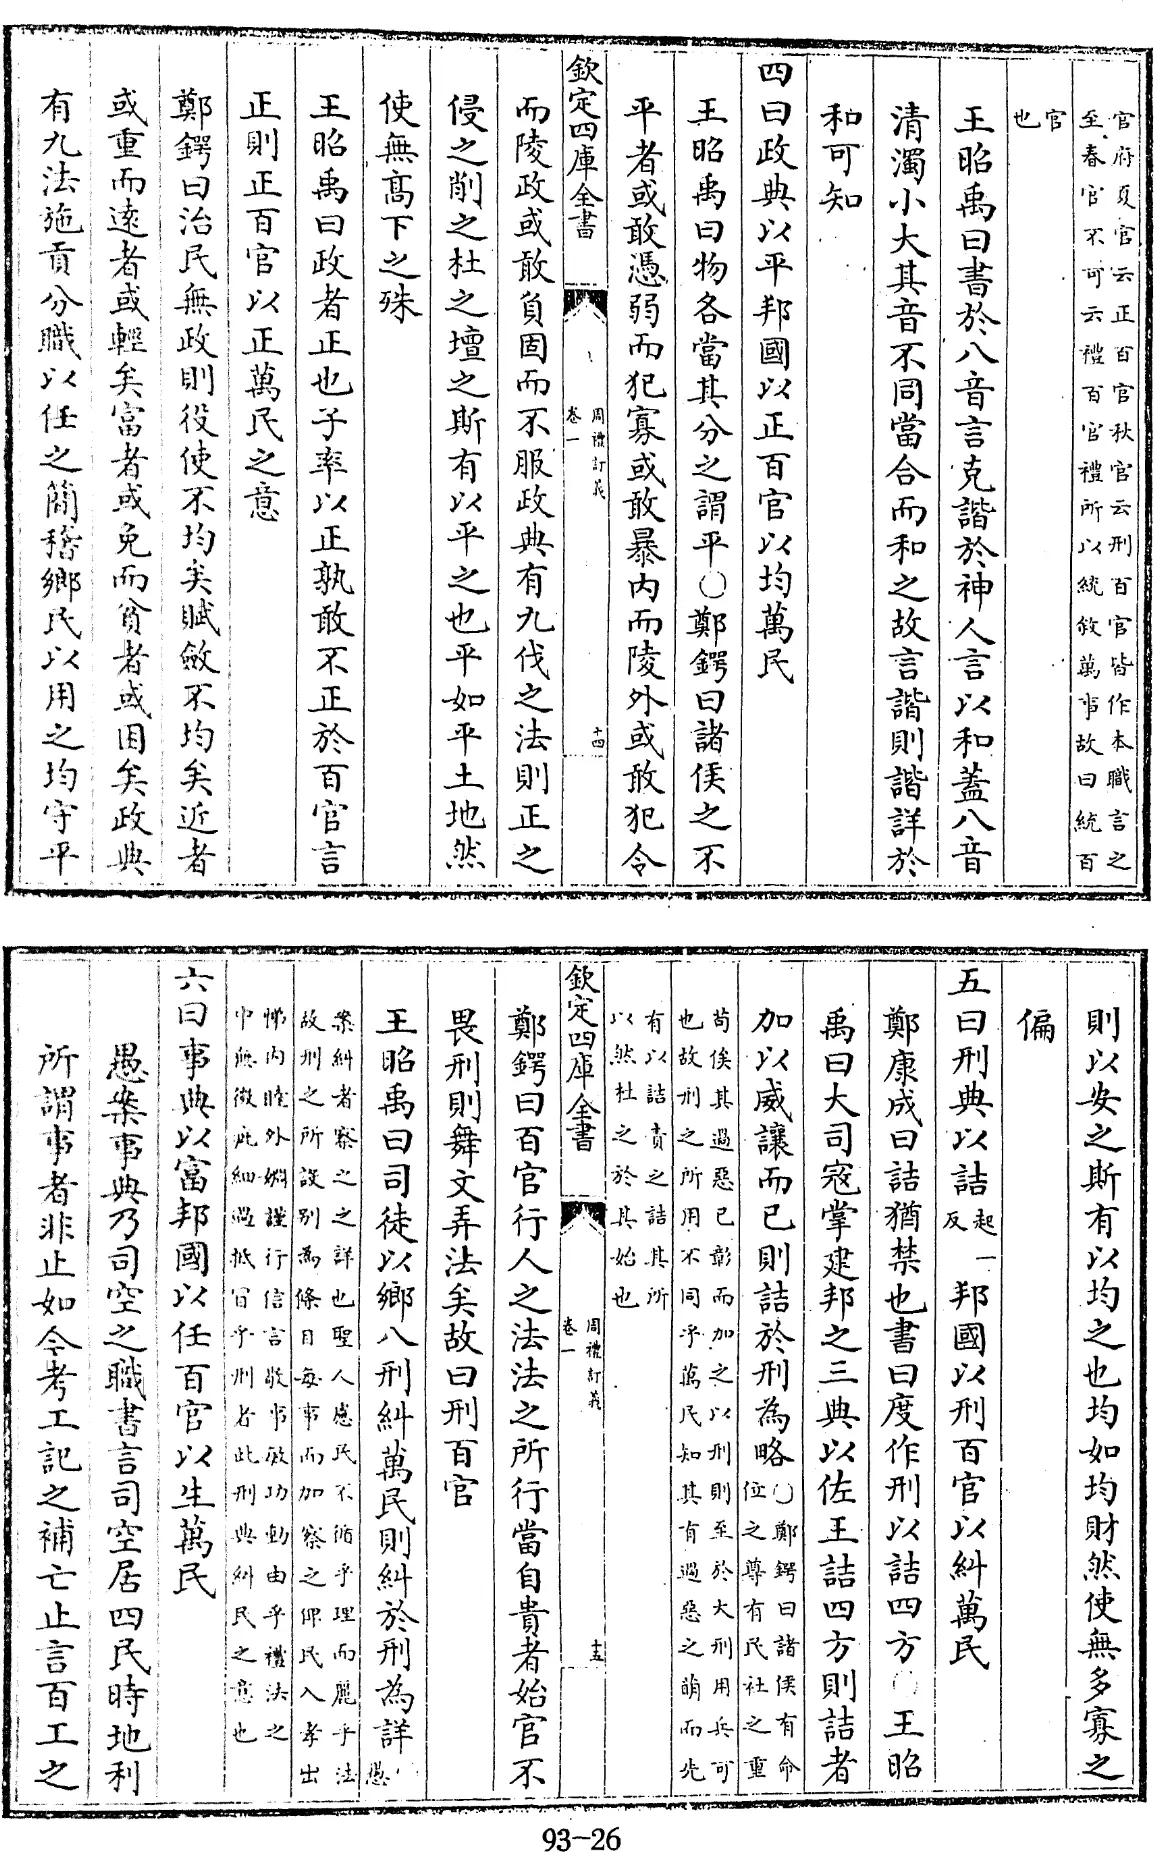 官府夏官云正百官秋官云刑百官皆作本職言之
至春官不可云禮百官禮所以統敘萬事故曰統百
官
也
王昭禹曰書於八音言克諧於神人言以和蓋八音
清濁小大其音不同當合而和之故言諧則諧詳於
和可知
四曰政典以平邦國以正百官以均萬民
王昭禹曰物各當其分之謂平○鄭鍔曰諸侯之不
平者或敢憑弱而犯寡或敢暴内而陵外或敢犯令
欽定四庫全書
周禮訂義
卷一
十四
而陵政或敢負固而不服政典有九伐之法則正之
侵之削之杜之壇之斯有以平之也平如平土地然
使無髙下之殊
王昭禹曰政者正也子率以正孰敢不正於百官言
正則正百官以正萬民之意
鄭鍔曰治民無政則役使不均矣賦斂不均矣近者
或重而逺者或輕矣富者或免而貧者或困矣政典
有九法施貢分職以任之簡稽鄉民以用之均守平
則以安之斯有以均之也均如均財然使無多寡之
偏
五曰刑典以詰起一反邦國以刑百官以糾萬民
鄭康成曰詰猶禁也書曰度作刑以詰四方○王昭
禹曰大司寇掌建邦之三典以佐王詰四方則詰者
加以威讓而已則詰於刑為略○鄭鍔曰諸侯有命
位之尊有民社之重
苟俟其過惡已彰而加之以刑則至於大刑用兵可
也故刑之所用不同乎萬民知其有過惡之萌而先
有以詰責之詰其所
以然杜之於其始也
欽定四庫全書
周禮訂義
卷一
十五
鄭鍔曰百官行人之法法之所行當自貴者始官不
畏刑則舞文弄法矣故曰刑百官
王昭禹曰司徒以鄉八刑糾萬民則糾於刑為詳愚
案糾者察之之詳也聖人慮民不循乎理而麗乎法
故刑之所設别為條目每事而加察之俾民入孝出
悌内睦外婣謹行信言敬事敏功動由乎禮法之
中無微疵細過抵冒乎刑者此刑典糾民之意也
六曰事典以富邦國以任百官以生萬民
愚案事典乃司空之職書言司空居四民時地利
所謂事者非止如今考工記之補亡止言百工之
93-26